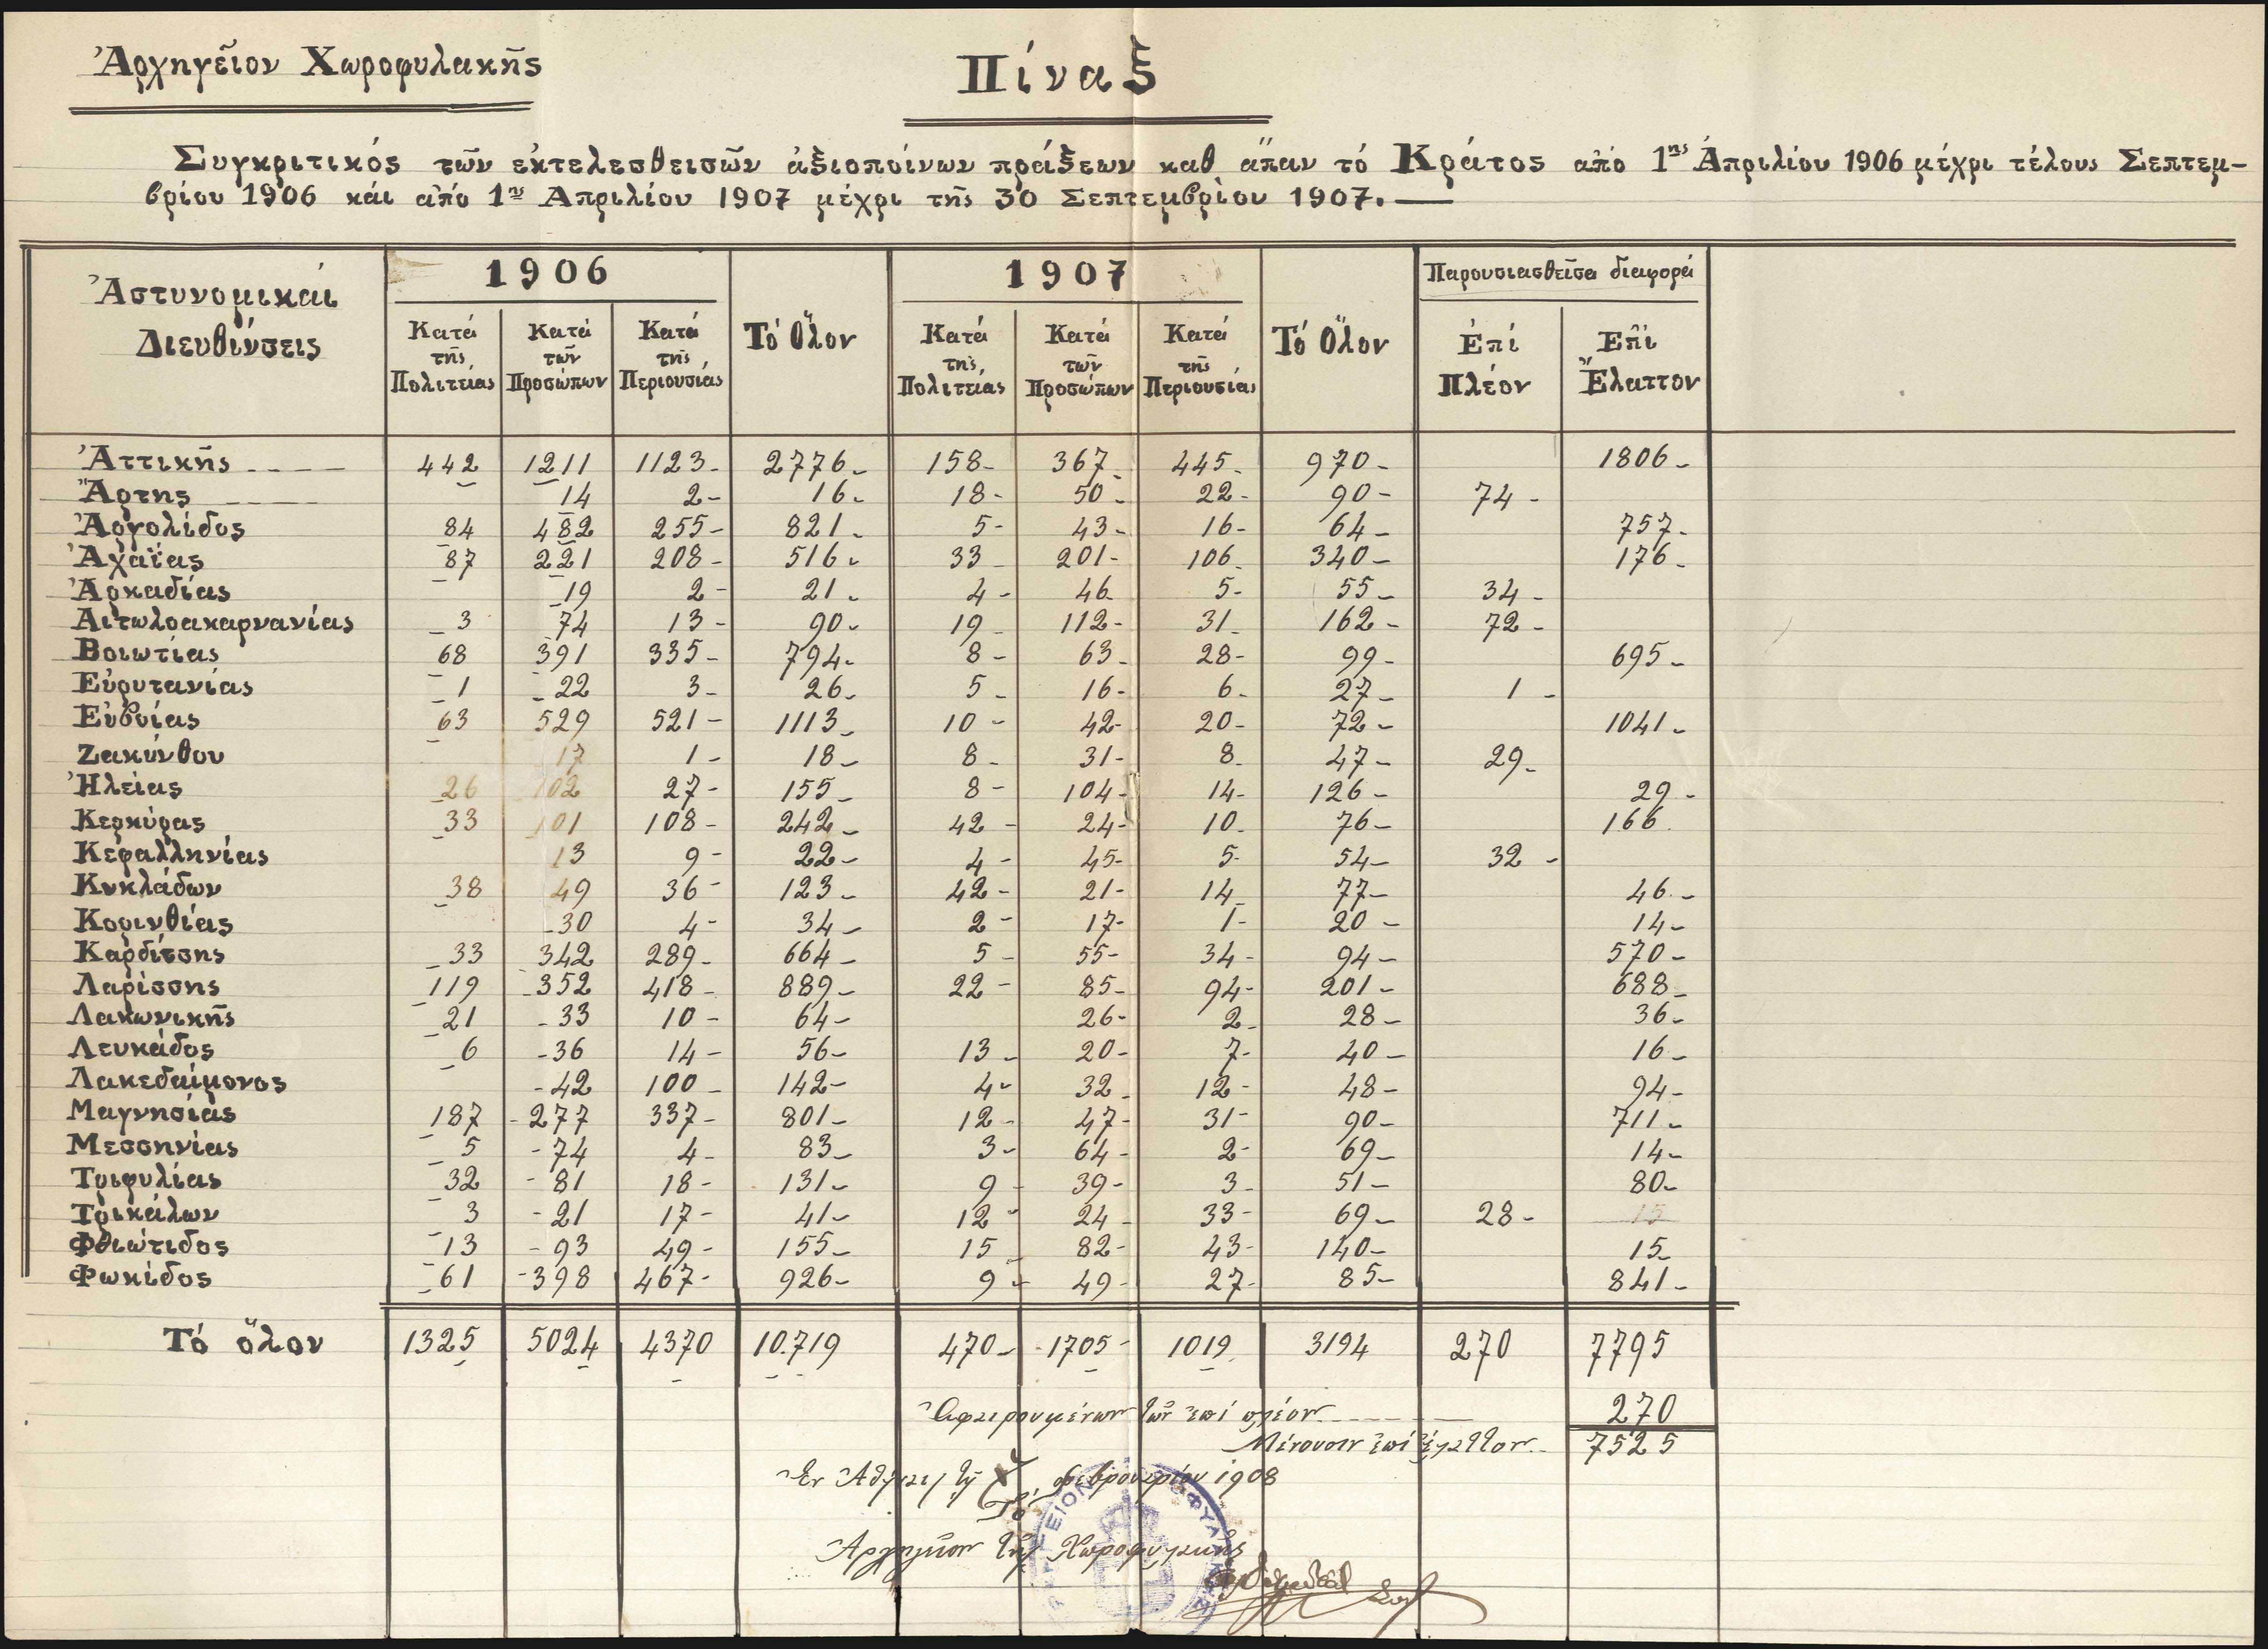 Ἀρχηγεῖον Χωροφυλακῆς
Πίναξ
Συγκριτικός τῶν ἐκτελεσθεισῶν ἀξιοποίνων πράξεων καθ ἅπαν τό Κράτος από 1ης Ἀπριλίου 1906 μέχρι τέλους Σεπτεμ-
βρίου 1906 καί από 1ης Απριλίου 1907 μέχρι τῆς 30 Σεπτεμβρίου 1907.—
Ἀστυνομικαί Διευθύνσεις 1906 1907 Παρουσιασθεῖσα διαφορά
Κατά τῆς Πολιτείας Κατά τῶν Προσώπων Κατά τῆς Περιουσίας Τό Ὅλον Κατά τῆς Πολιτείας Κατά τῶν Προσώπων Κατά τῆς Περιουσίας Τό Ὅλον Ἐπί Πλέον Ἐπί Ἔλαττον
Ἀττικῆς 442 1211 1123- 2776- 158- 367- 445- 970- 1806-
Ἄρτης 14 2- 16- 18- 50- 22- 90- 74-
Ἀργολίδος 84 482 255- 821- 5- 43- 16- 64- 757-
Ἀχαΐας 87 221 208- 516- 33- 201- 106- 340- 176-
Ἀρκαδίας 19 2- 21- 4- 46- 5- 55- 34-
Αἰτωλοακαρνανίας 3 74 13- 90- 19- 112- 31- 162- 72-
Βοιωτίας 68 391 335- 794- 8- 63- 28- 99- 695-
Εὐρυτανίας 1 22 3- 26- 5- 16- 6- 27- 1-
Εὐβοίας 63 529 521- 1113- 10- 42- 20- 72- 1041-
Ζακύνθου 17 1- 18- 8- 31- 8- 47- 29-
Ἠλείας 26 102 27- 155- 8- 104- 14- 126- 29-
Κερκύρας 33 101 108- 242- 42- 24- 10- 76- 166
Κεφαλληνίας 13 9- 22- 4- 45- 5- 54- 32-
Κυκλάδων 38 49 36- 123- 42- 21- 14- 77- 46-
Κορινθίας 30 4- 34- 2- 17- 1- 20- 14-
Καρδίτσης 33 342 289- 664- 5- 55- 34- 94- 570-
Λαρίσσης 119 352 418- 889- 22- 85- 94- 201- 688-
Λακωνικῆς 21 33 10- 64- 26- 2- 28- 36-
Λευκάδος 6 36 14- 56- 13- 20- 7- 40- 16-
Λακεδαίμονος 42 100- 142- 4- 32- 12- 48- 94-
Μαγνησίας 187 277 337- 801- 12- 47- 31- 90- 711-
Μεσσηνίας 5 74 4- 83- 3- 64- 2- 69- 14-
Τριφυλίας 32 81 18- 131- 9- 39- 3- 51- 80-
Τρικάλων 3 21 17- 41- 12- 24- 33- 69- 28- 15
Φθιώτιδος 13 93 49- 155- 15- 82- 43- 140- 15-
Φωκίδος 61 398 467- 926- 9- 49- 27- 85- 841-
Τό ὅλον 1325 5024 4370 10.719 470- 1705- 1019 3194 270 7795
Ἀφαιρουμένων τῶν ἐπί πλέον 270
Μένουσιν ἐπί ἔλαττον 7525
Ἐν Ἀθήναις τῇ Φεβρουαρίου 1908
Τό
Ἀρχηγεῖον τῆς Χωροφυλακῆς